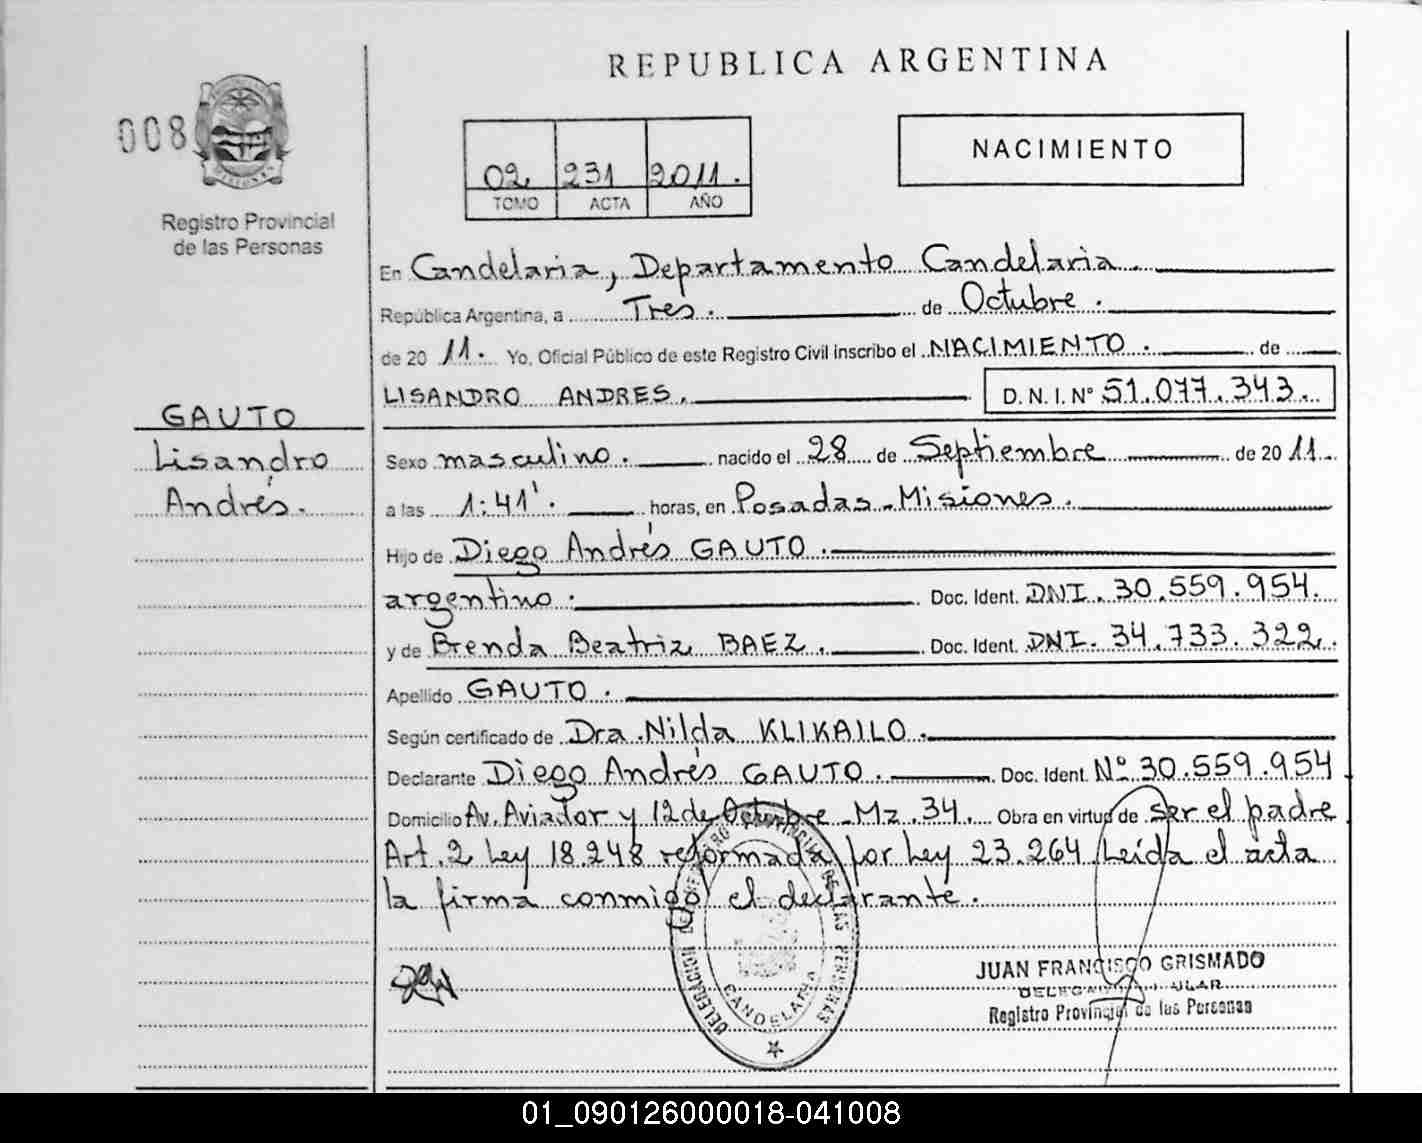 REPUBLICA ARGENTINA
008
NACIMIENTO
02 231 2011.
TOMO ACTA AÑO
Registro Provincial
de las Personas
En Candelaria, Departamento Candelaria.
República Argentina, a Tres. de Octubre.
de 20 11. Yo, Oficial Público de este Registro Civil inscribo el NACIMIENTO. de
LISANDRO ANDRES. D. N. I. Nº 51.077.343.
GAUTO
Lisandro
Andrés.
Sexo masculino. nacido el 28 de Septiembre de 20 11.
a las 1:41'. horas, en Posadas-Misiones.
Hijo de Diego Andrés GAUTO.
argentino. Doc. Ident. DNI. 30.559.954.
y de Brenda Beatriz BAEZ. Doc. Ident. DNI. 34.733.322.
Apellido GAUTO.
Según certificado de Dra. Nilda KLIKAILO.
Declarante Diego Andrés GAUTO. Doc. Ident. Nº 30.559.954
Domicilio Av. Aviador y 12 de Octubre - Mz. 34. Obra en virtud de ser el padre
Art. 2 Ley 18.248 reformada por Ley 23.264 Leída el acta
la firma conmigo el declarante.
DELEGACION REGISTRO PROVINCIAL DE LAS PERSONAS
CANDELARIA
JUAN FRANCISCO GRISMADO
Registro Provincial de las Personas
01_090126000018-041008